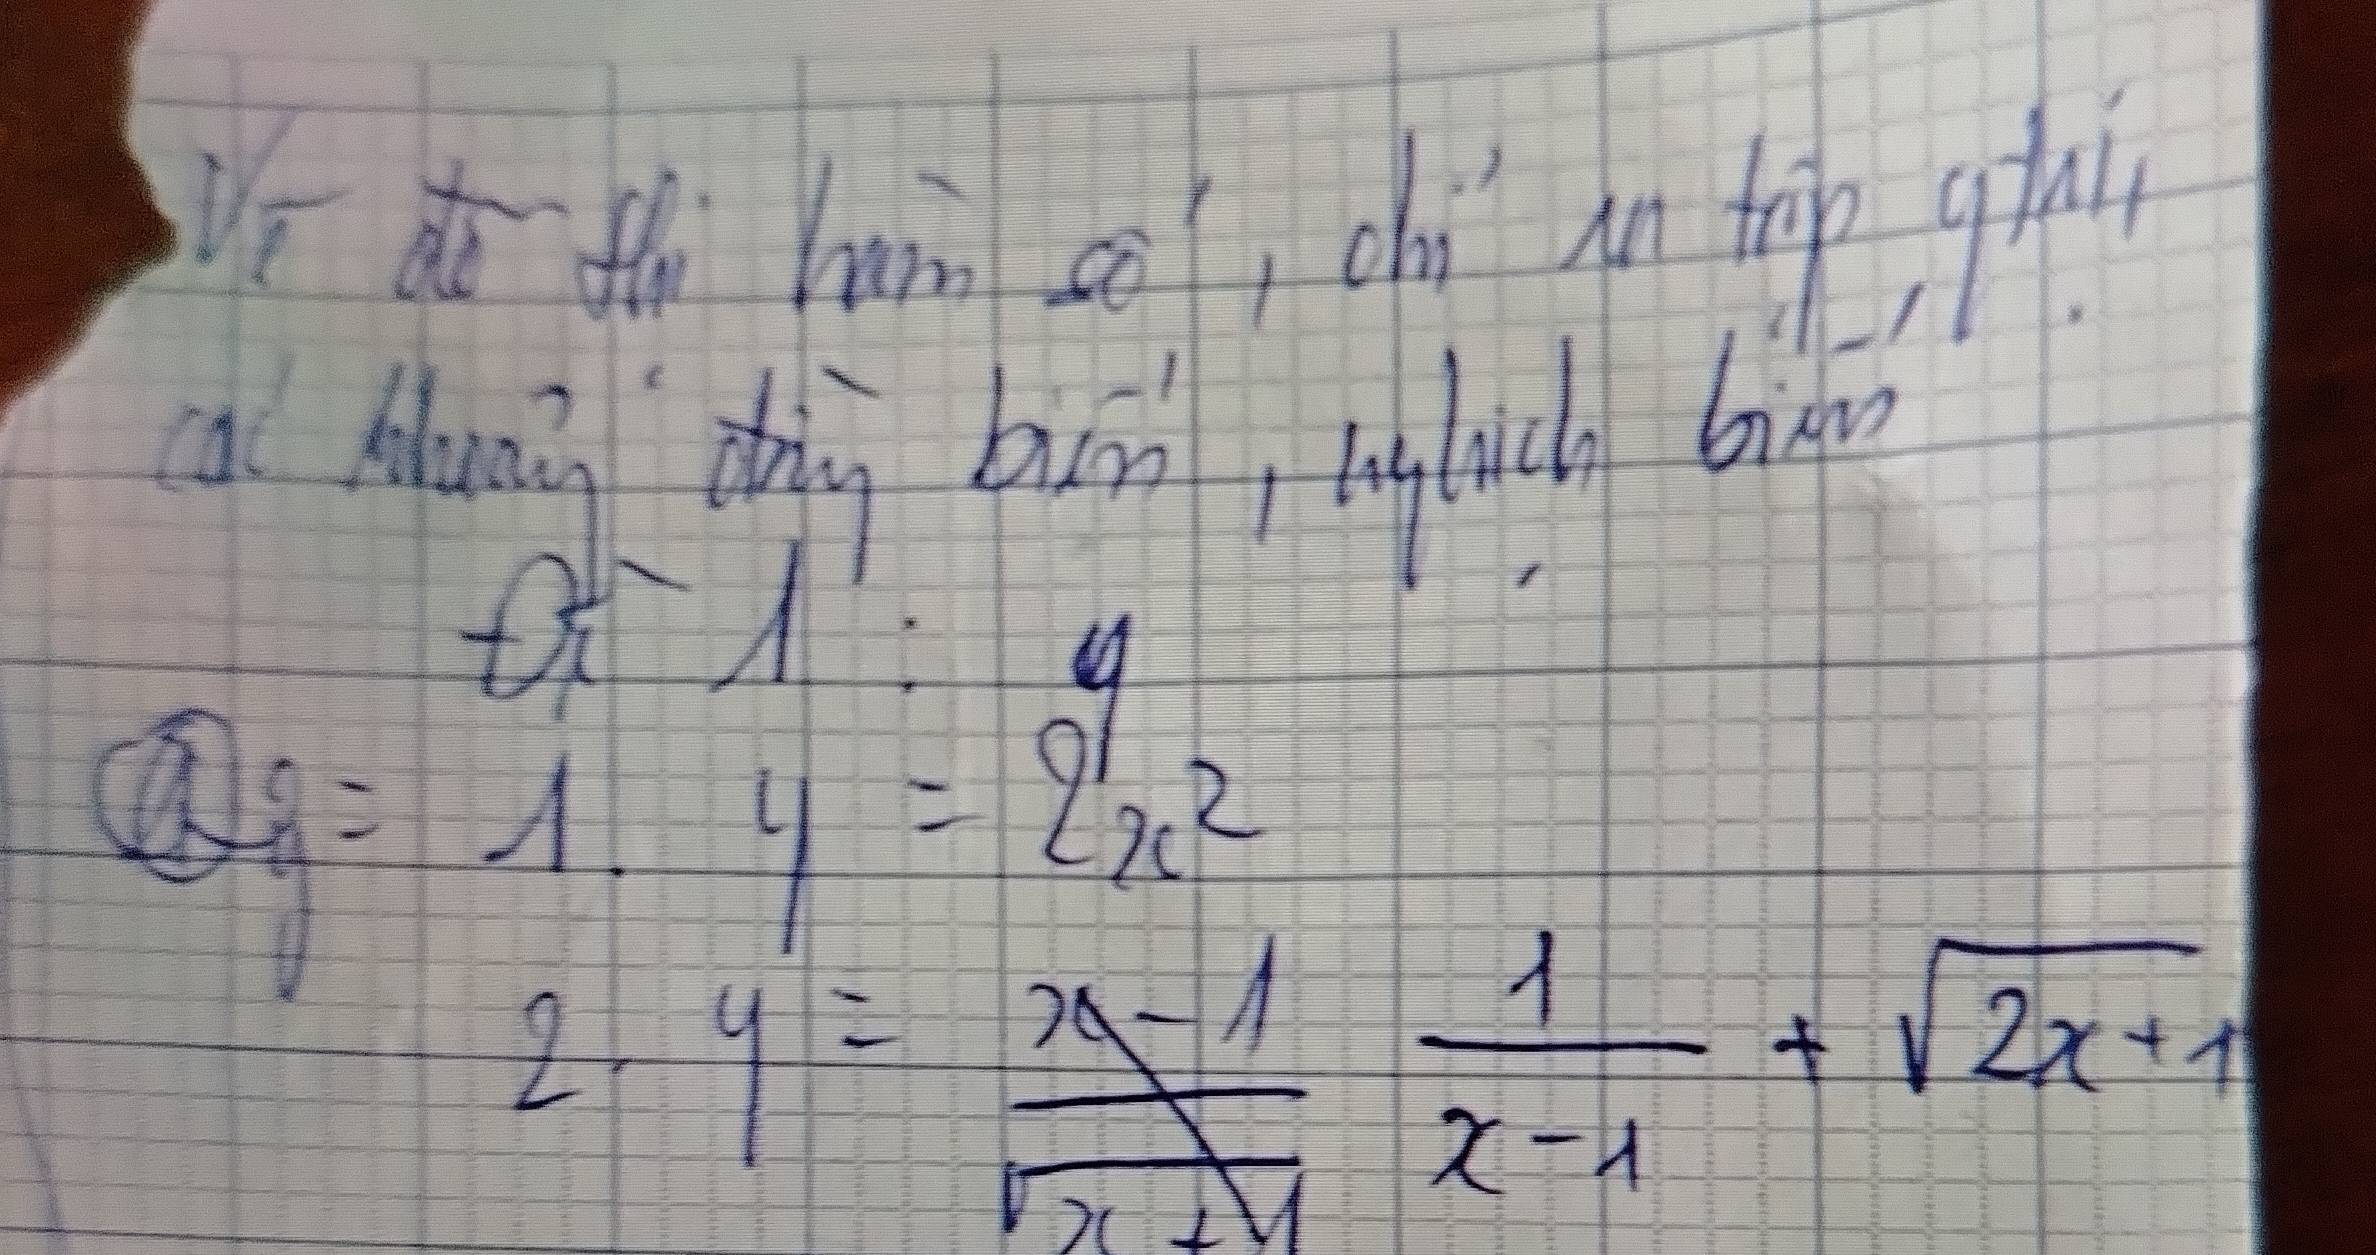 Vẽ đồ thị hàm số, chỉ ra tập giá trị
các khoảng đồng biến, nghịch biến
Đề 1:
y = 1. y = 2x²
2. y = x-1/√x+1 1/x-1 + √2x+1